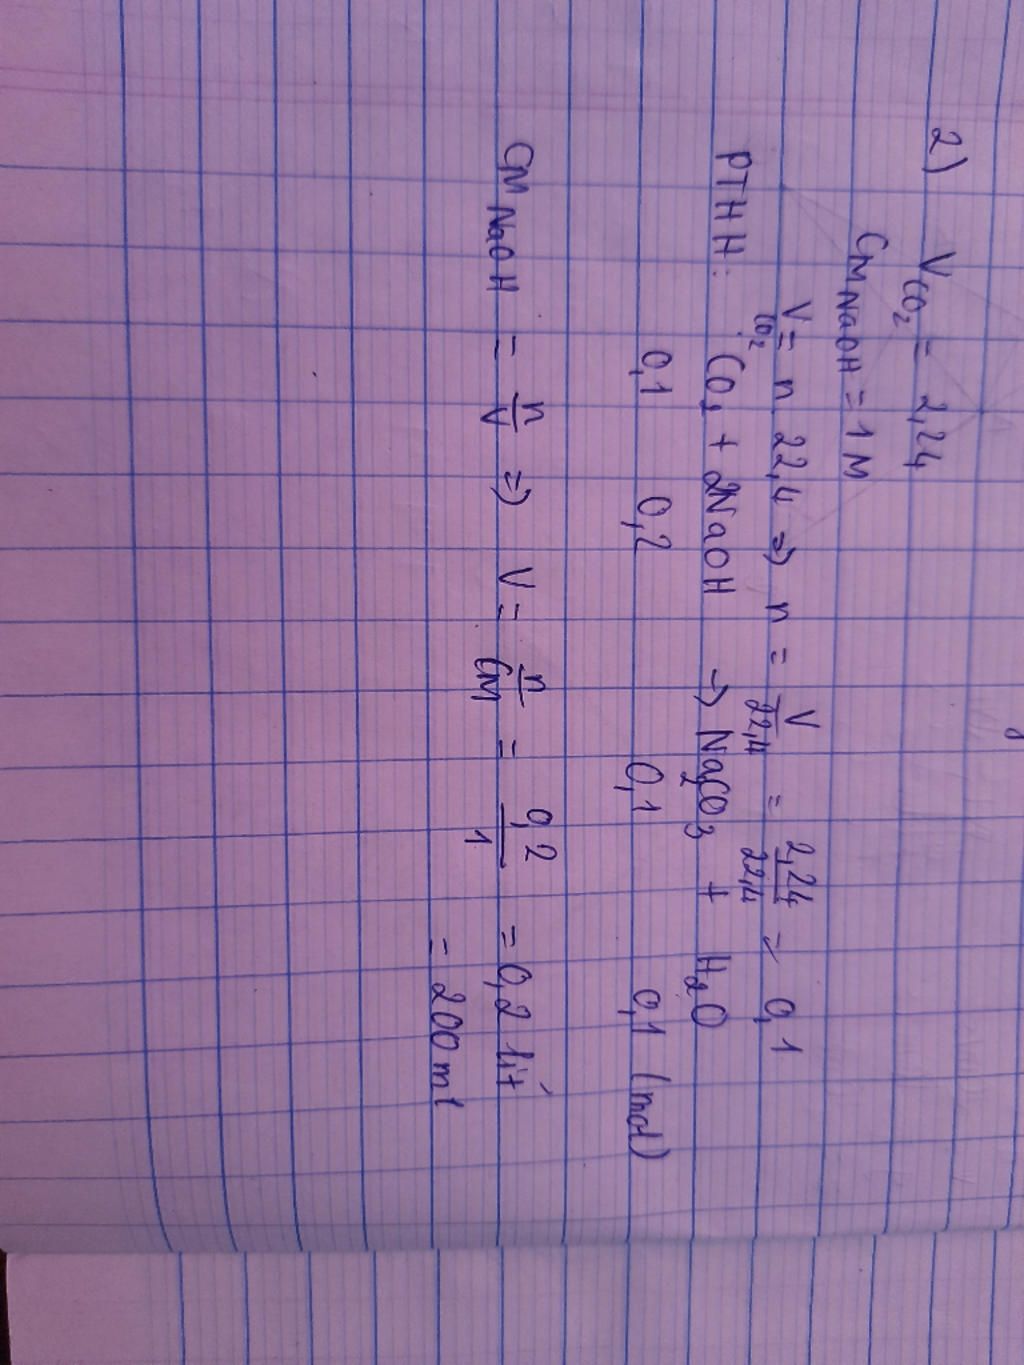 2) VCO2 = 2,24
CM NaOH = 1M
VCO2 = n 22,4 => n = V/22,4 = 2,24/22,4 = 0,1
PTHH: CO2 + 2NaOH → Na2CO3 + H2O
0,1 0,2 0,1 0,1 (mol)
CM NaOH = n/V => V = n/CM = 0,2/1 = 0,2 lít
= 200ml